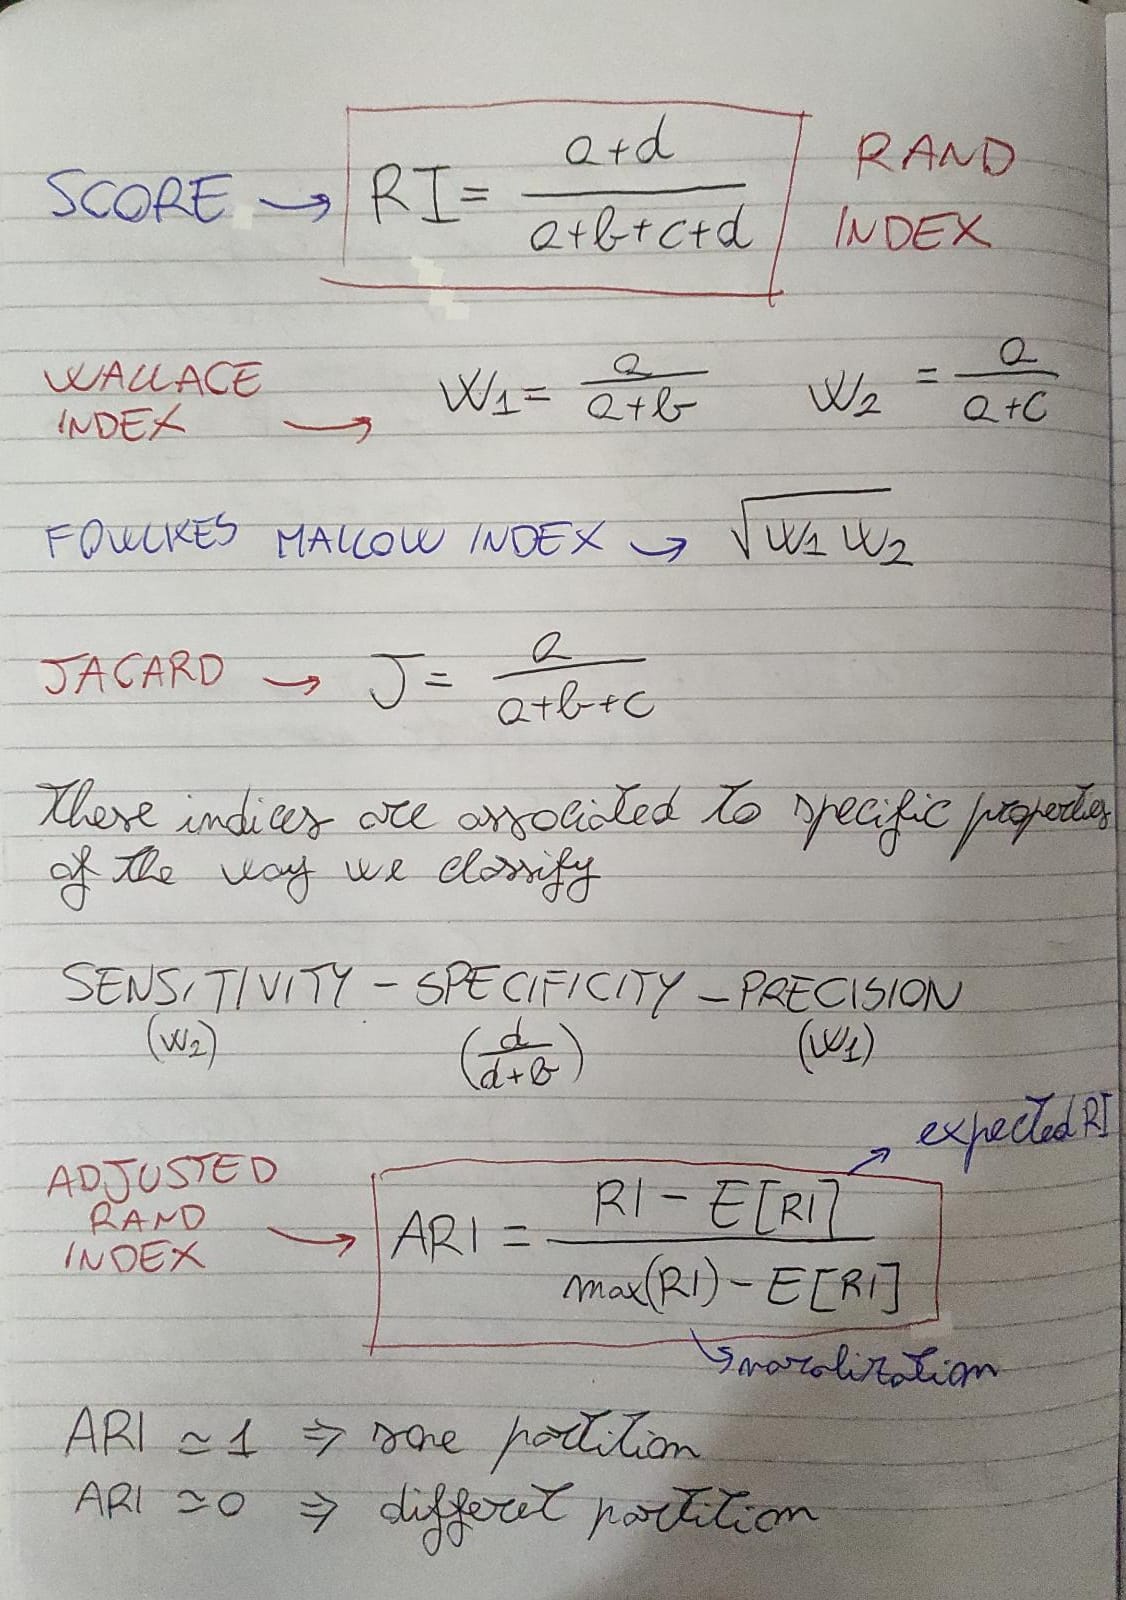 SCORE → RI = a+d / a+b+c+d RAND INDEX
WALLACE INDEX → W1 = a / a+b W2 = a / a+c
FOWLKES MALLOW INDEX → √W1 W2
JACARD → J = a / a+b+c
These indices are associated to specific properties
of the way we classify
SENSITIVITY – SPECIFICITY – PRECISION
(W2) (d / d+b) (W1)
expected RI
ADJUSTED RAND INDEX → ARI = RI – E[RI] / max(RI) – E[RI]
ARI ≃ 1 ⇒ same partition
ARI ≃ 0 ⇒ differet partition